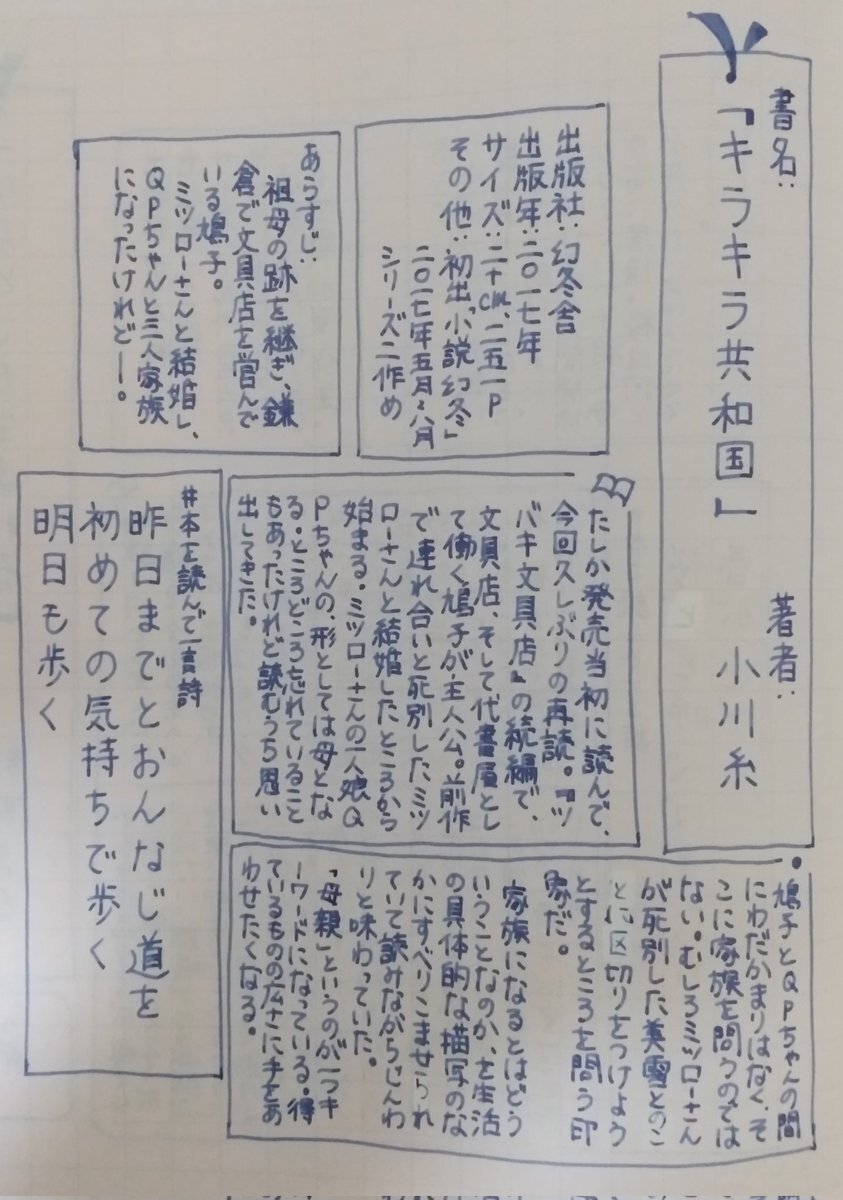 書名:
『キラキラ共和国』
著者:
小川糸
出版社:幻冬舎
出版年:二〇一七年
サイズ:二十cm、二五一P
その他:初出「小説幻冬」
二〇一七年五月~八月
シリーズ二作め
あらすじ:
祖母の跡を継ぎ、鎌
倉で文具店を営んで
いる鳩子。
ミツローさんと結婚し、
QPちゃんと三人家族
になったけれどー。
たしか発売当初に読んで、
今回久しぶりの再読。『ツ
バキ文具店』の続編で、
文具店、そして代書屋とし
て働く鳩子が主人公。前作
で連れ合いと死別したミツ
ローさんと結婚したところから
始まる。ミツローさんの一人娘Q
Pちゃんの、形としては母とな
る。ところどころ忘れていること
もあったけれど読むうち思い
出してきた。
鳩子とQPちゃんの間
にわだかまりはなく、そ
こに家族を問うのでは
ない。むしろミツローさん
が死別した美雪とのこ
とに区切りをつけよう
とするところを問う印
象だ。
家族になるとはどう
いうことなのか、を生活
の具体的な描写のな
かにすべりこませられ
ていて読みながらじんわ
りと味わっていた。
「母親」というのが一つキ
ーワードになっている。得
ているものの広さに手をあ
わせたくなる。
#本を読んで一言詩
昨日までとおんなじ道を
初めての気持ちで歩く
明日も歩く